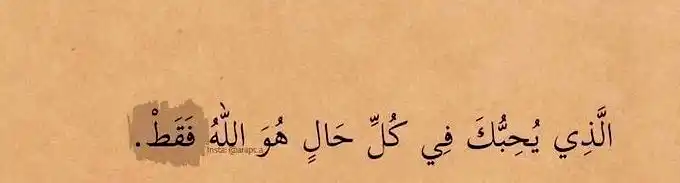 الَّذِي يُحِبُّكَ فِي كُلِّ حَالٍ هُوَ اللهُ فَقَطْ.
Insta: @araps.a